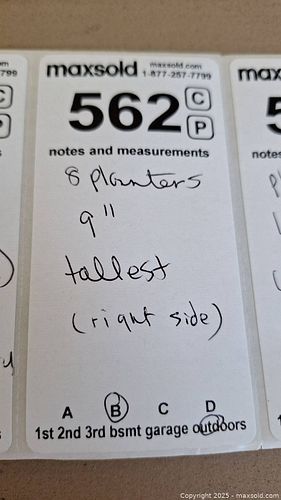 maxsold maxsold.com
1-877-257-7799
562 C
P
notes and measurements
8 planters
9"
tallest
(right side)
A B C D
1st 2nd 3rd bsmt garage outdoors
max
5
notes
799
C
Copyright © 2025 - maxsold.com